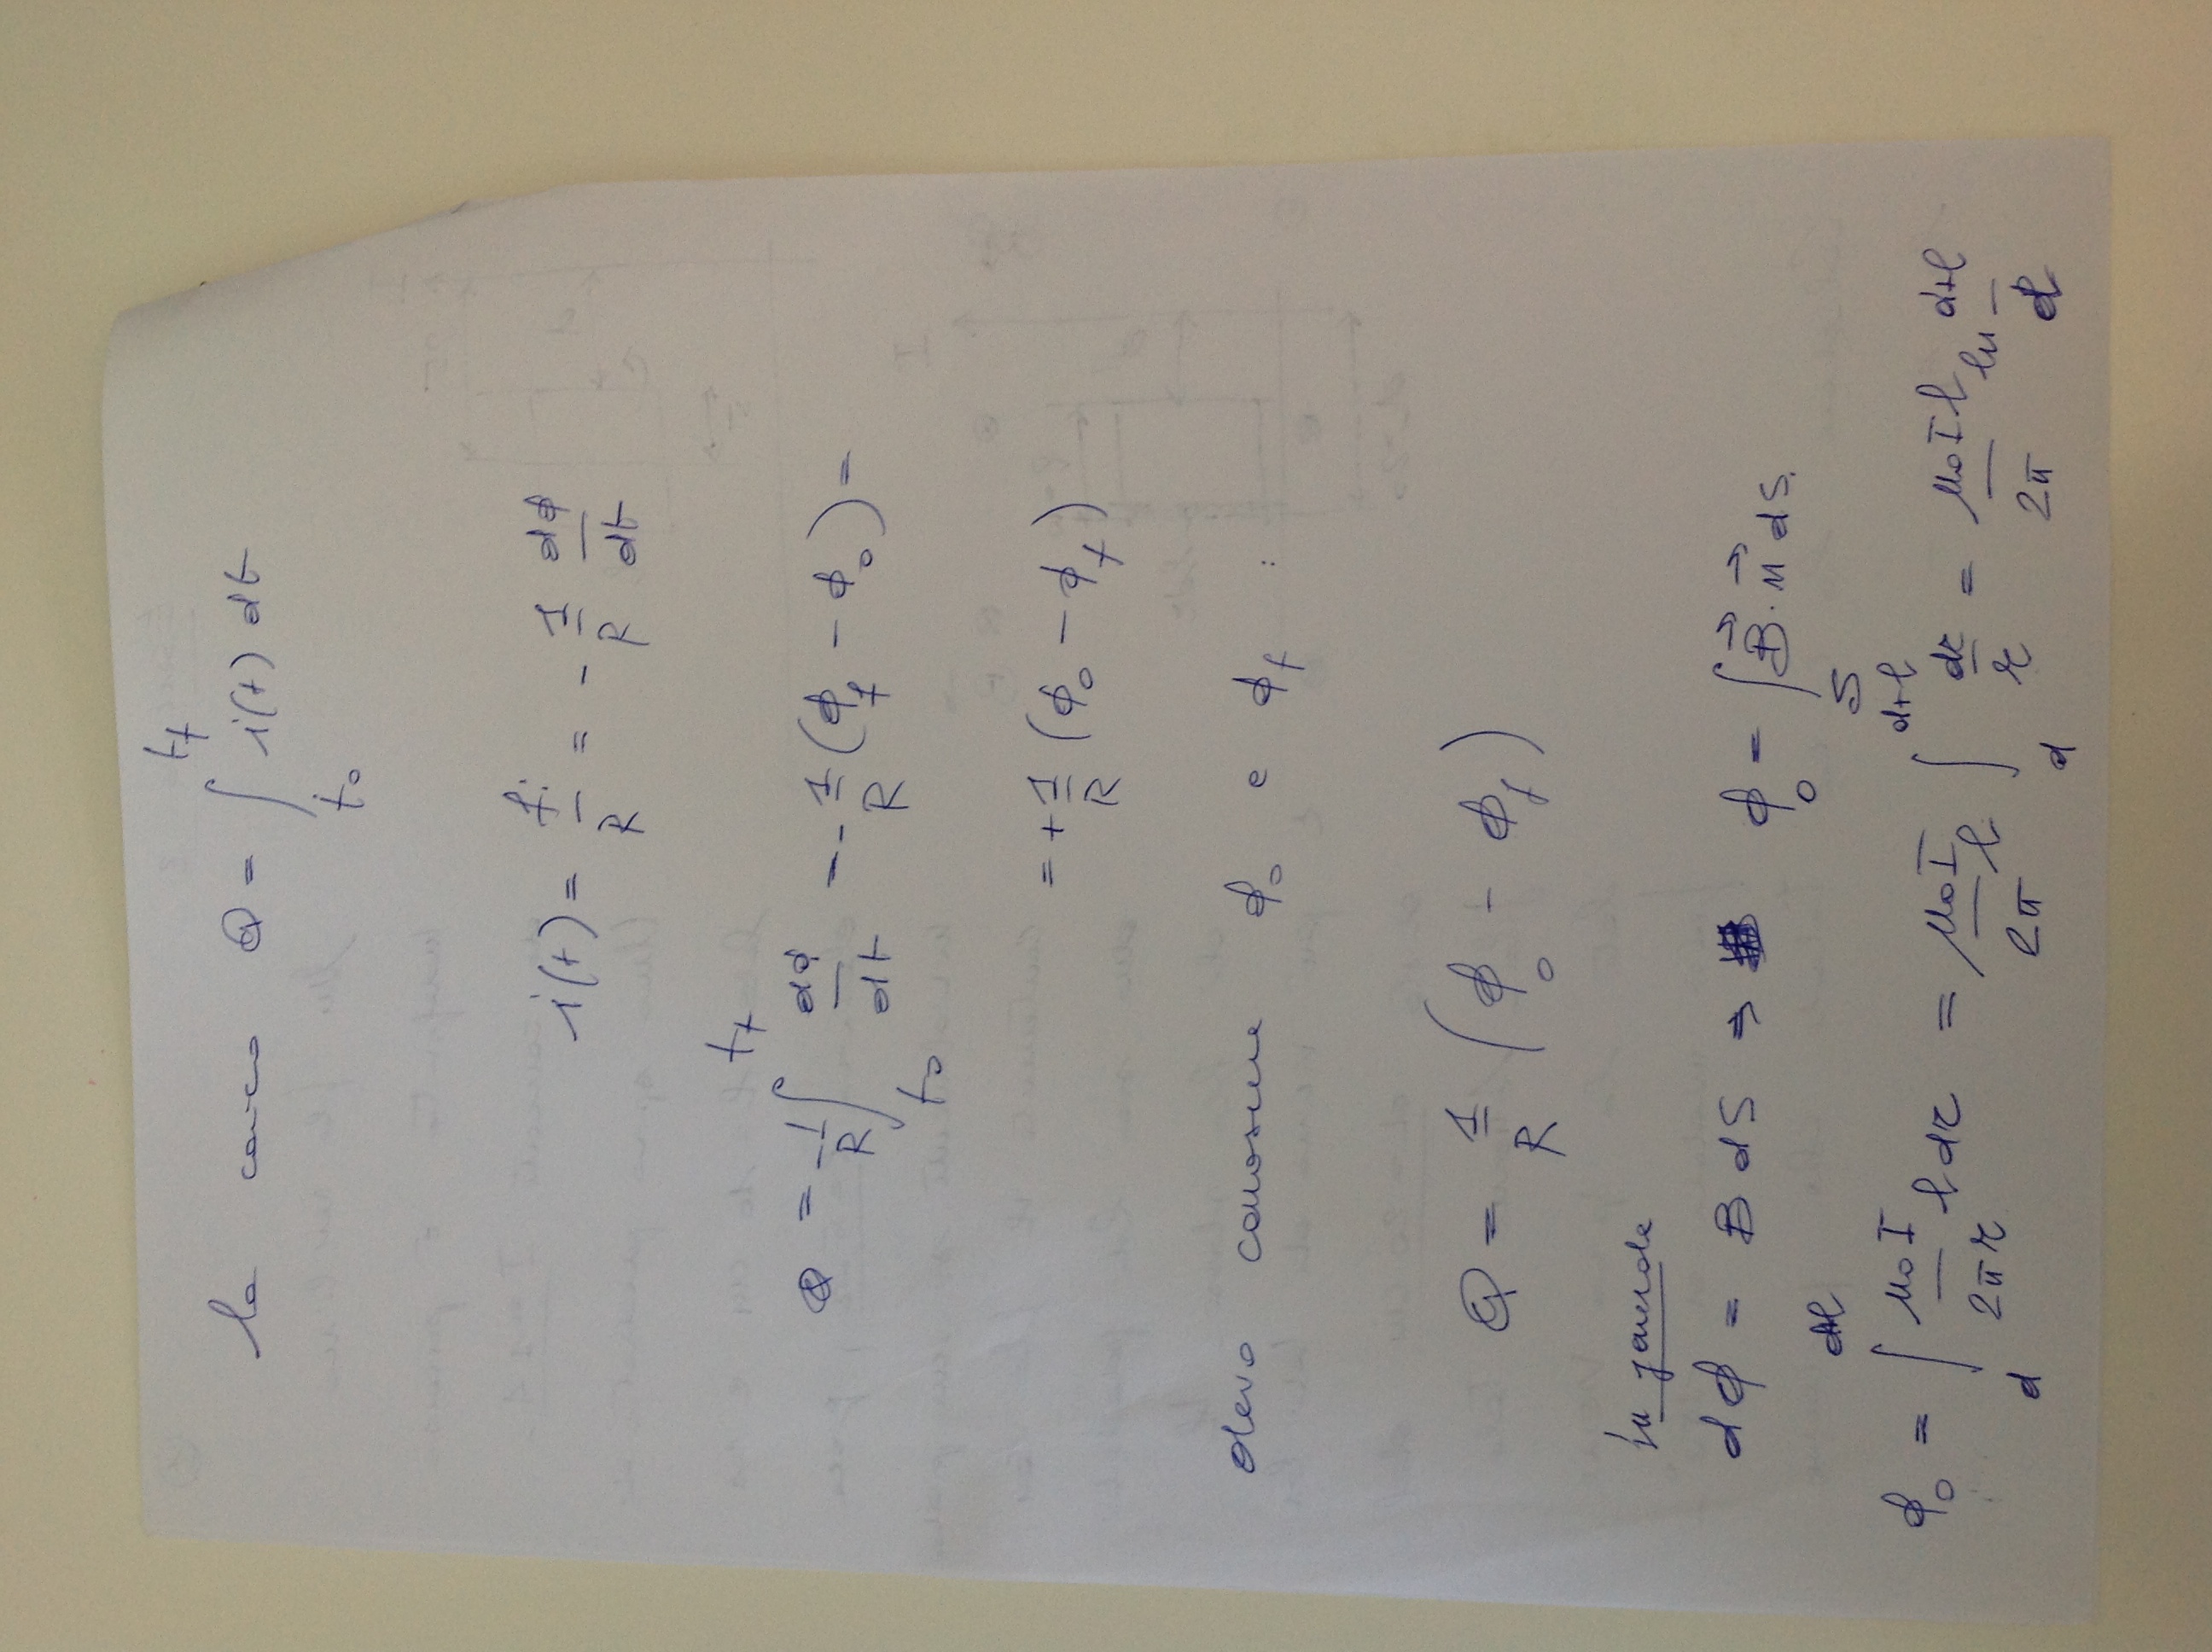 la carica Q = ∫_{t_0}^{t_f} i(t) dt
i(t) = f_i / R = - 1/R dϕ/dt
Q = -1/R ∫_{t_0}^{t_f} dϕ/dt = - 1/R (ϕ_f - ϕ_0) =
= + 1/R (ϕ_0 - ϕ_f)
devo conoscere ϕ_0 e ϕ_f :
Q = 1/R (ϕ_0 - ϕ_f)
In generale
dϕ = B dS ⇒ ϕ_0 = ∫_S B⃗ · n⃗ dS.
ϕ_0 = ∫_d^{d+l} μ_0 I / 2π r l dr = μ_0 I / 2π l ∫_d^{d+l} dr / r = μ_0 I l / 2π ln d+l / d